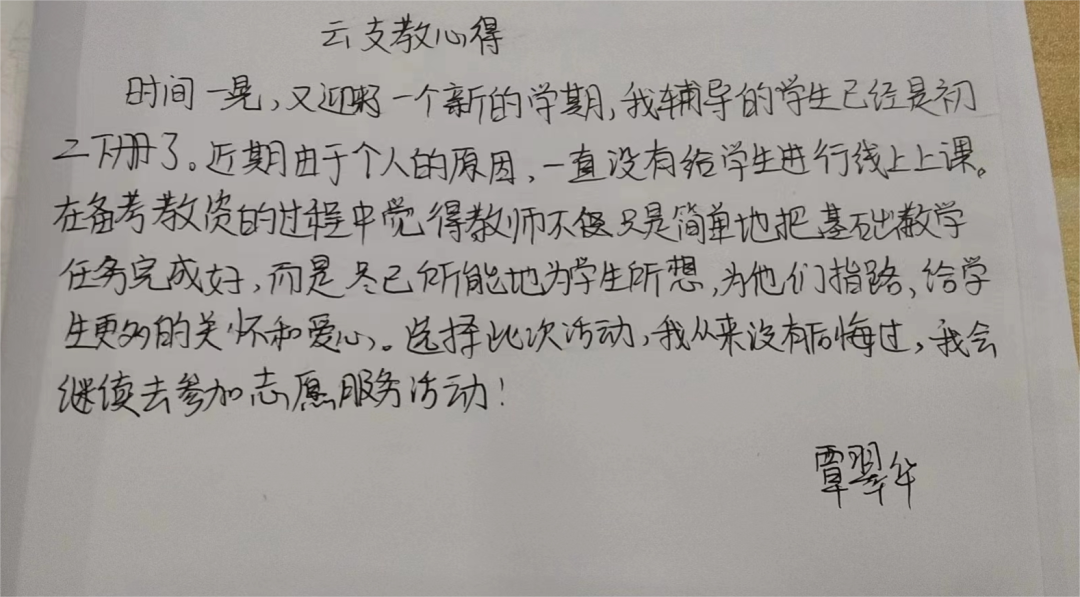 云支教心得
时间一晃，又迎来一个新的学期，我辅导的学生已经是初
二下册了。近期由于个人的原因，一直没有给学生进行线上上课。
在备考教资的过程中觉得教师不仅只是简单地把基础教学
任务完成好，而是尽己所能地为学生所想，为他们指路，给学
生更多的关怀和爱心。选择此次活动，我从来没有后悔过，我会
继续去参加志愿服务活动！
覃翠华